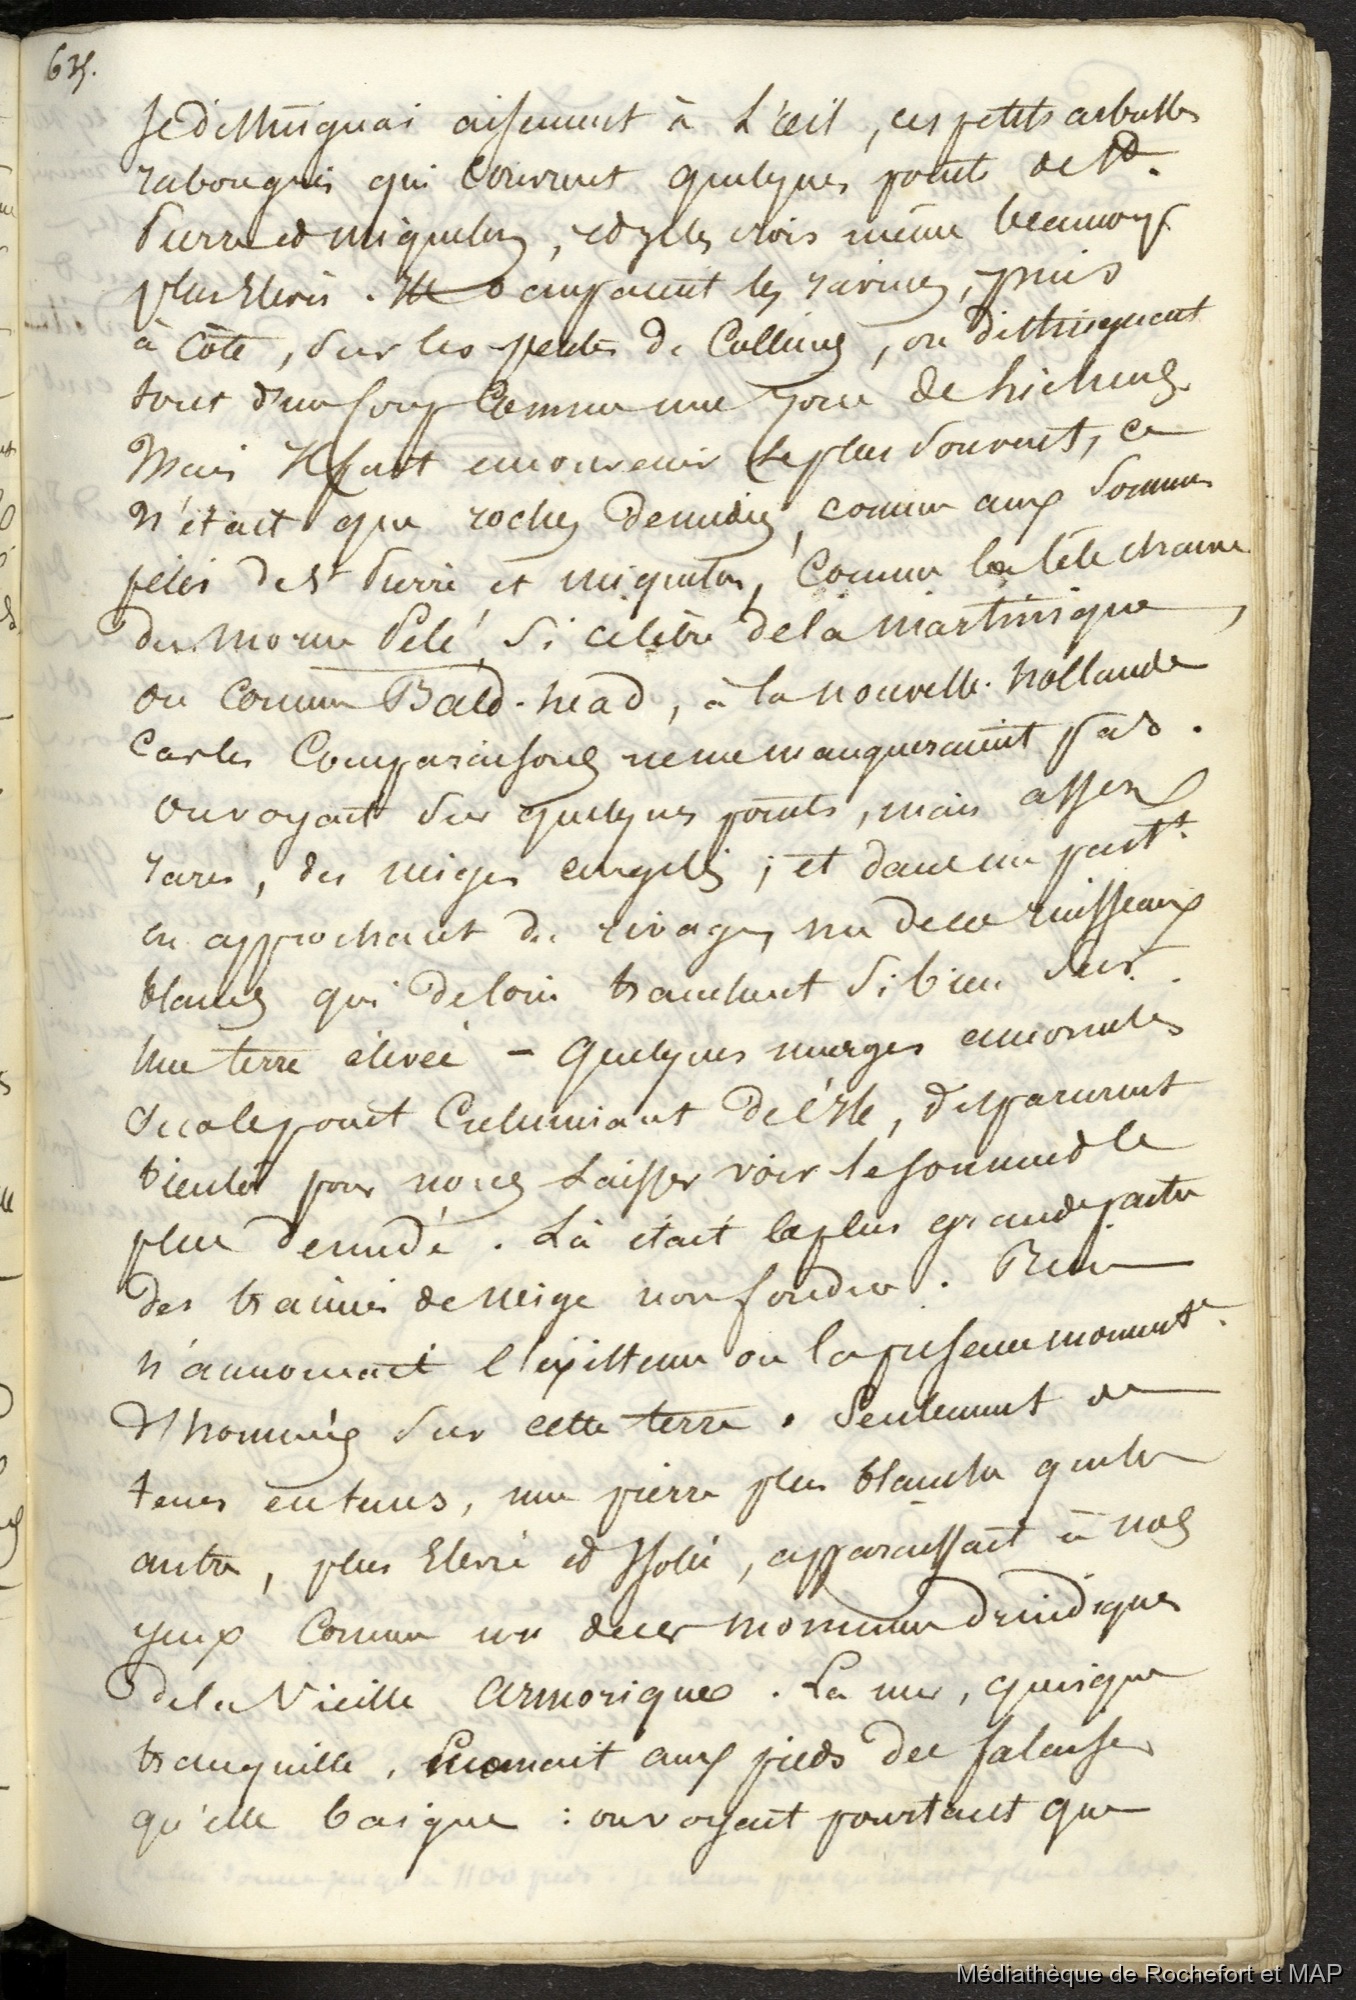 635.
Je distinguai aisement à L'œil, ces petits arbustes
rabougris qui Couvrent quelques points de St.
Pierre et Miquelon, et je les crois même beaucoup
plus Elevés. Ils occupaient les ravines, puis
à Côté, sur les pentes de Collines, on distinguait
tout d'un Coup Comme une Zone de Lichens.
Mais Il faut en convenir Le plus souvent, ce
n'était que roches denudées, comme aux Sommets
pelés de St Pierre et Miquelon, Comme la tête chauve
du Morne Pelé, Si célèbre de la Martinique,
ou Comme Bald-head, à la nouvelle-hollande
Car les Comparaisons ne me manqueraient pas.
on voyait sur quelques points, mais assez
rares, des neiges en ; et dans un
en approchant du rivage, un de ces ruisseaux
blancs qui de loin tranchent si bien sur
une terre élevée - quelques nuages amoncelés
sur le point Culminant de l'Ile, disparurent
bientôt pour nous Laisser voir le sommet le
plus denudé. Là était la plus grande partie
des trainées de Neige non fondues. Rien
n'annoncait l'existence ou la présence moment.
d'hommes sur cette terre. Seulement de
tems en tems, une pierre plus blanche que les
autres, plus Elevée et Isolée, apparaissait à nos
yeux Comme un de ces monumens druidiques
de la Vieille Armorique. La mer, quoique
tranquille, aux pieds des falaises
qu'elle baigne : on voyait pourtant que
Médiathèque de Rochefort et MAP